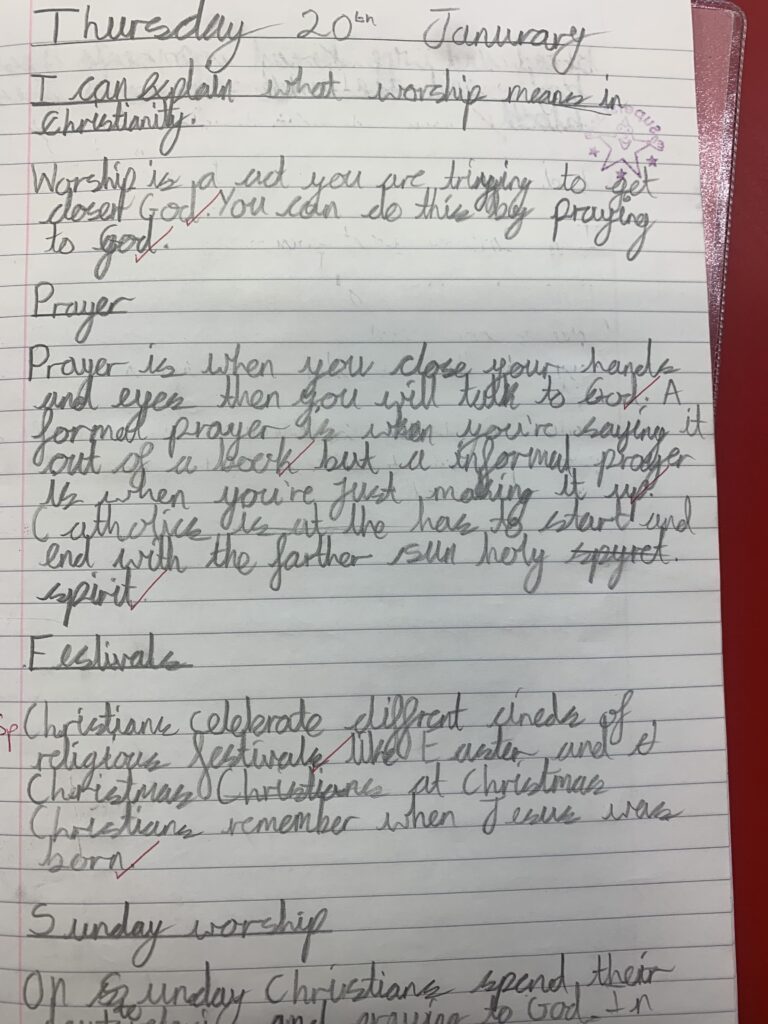 Thursday 20th Janurary
I can explain what worship means in
Christianity.
Worship is a act you are tringing to get
closert God. You can do this by praying
to God.
Prayer
Prayer is when you close your hands
and eyes then you will talk to God. A
formal prayer is when you're saying it
out of a book but a informal prayer
is when you're just making it up.
Catholics is at the has to start and
end with the farther sun holy spyret.
spirit
Festivals
Sp Christians celebrate diffrent cineds of
religious festivals like Easter and
Christmas Christians at Christmas
Christians remember when Jesus was
born.
Sunday worship
On Sunday Christians spend their
and praying to God. In